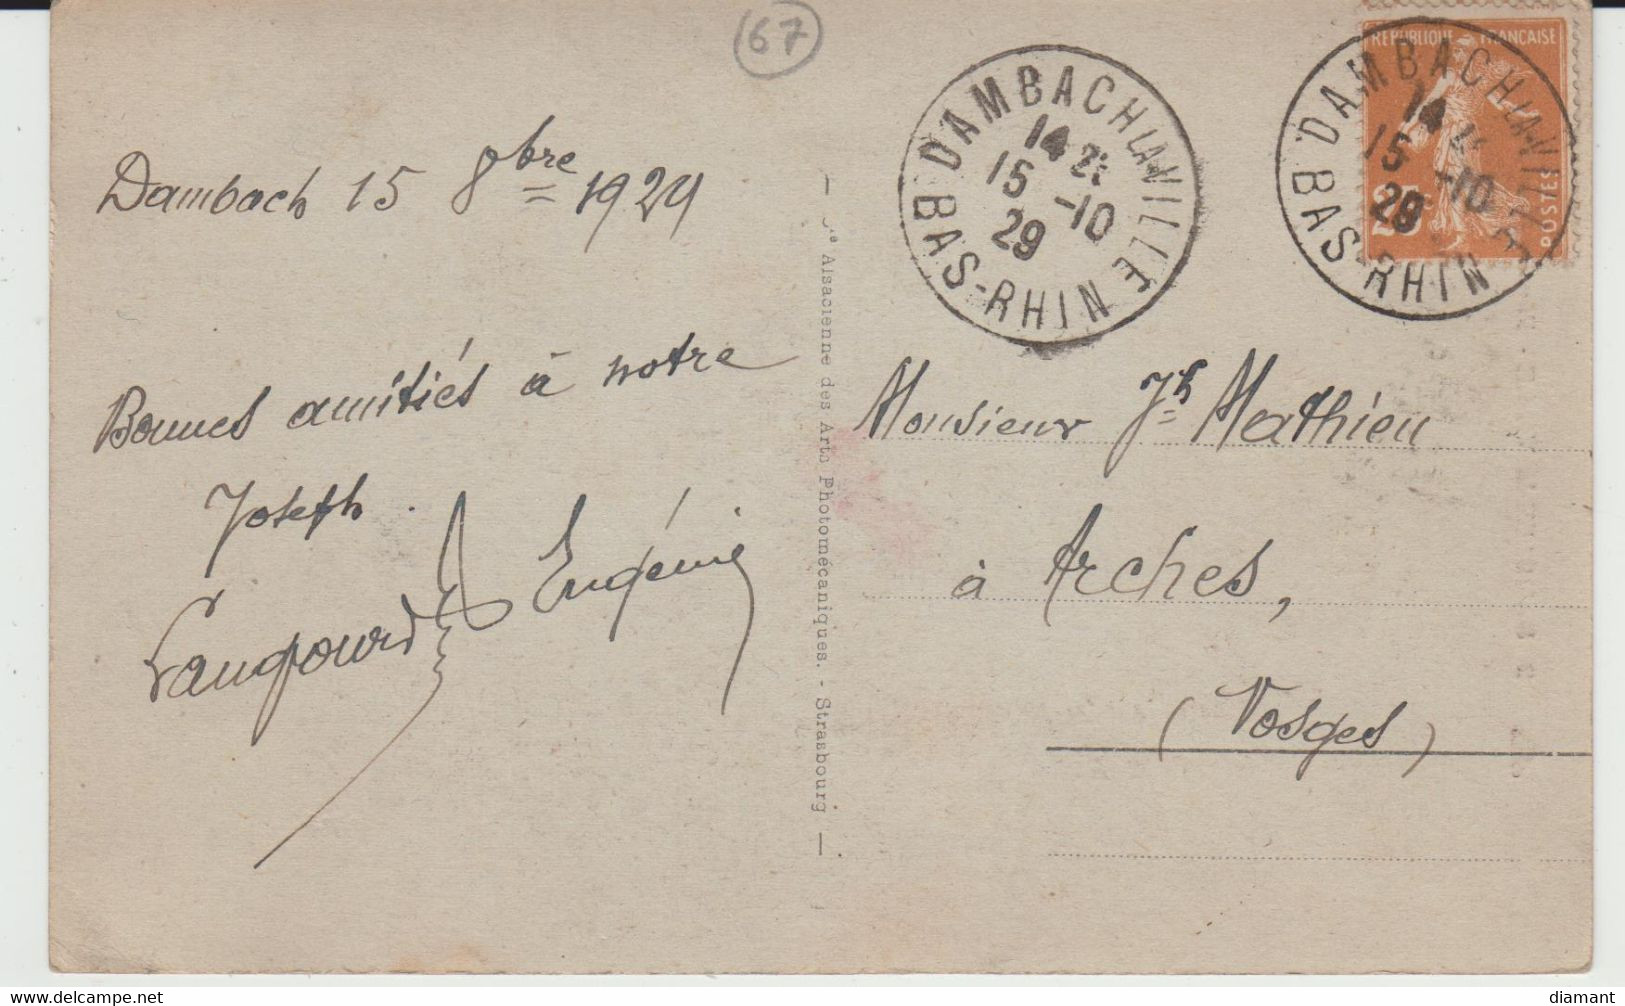 67
Dambach 15 8bre 1929
Bonnes amitiés à notre
Joseph.
Eugénie
DAMBACH-LA-VILLE
14
15 -10
29
BAS-RHIN
DAMBACH-LA-VILLE
14
15 -10
29
BAS-RHIN
REPUBLIQUE FRANÇAISE
25c
POSTES
Alsacienne des Arts Photomécaniques. - Strasbourg
Monsieur Jh Mathieu
à Arches,
(Vosges)
diamant